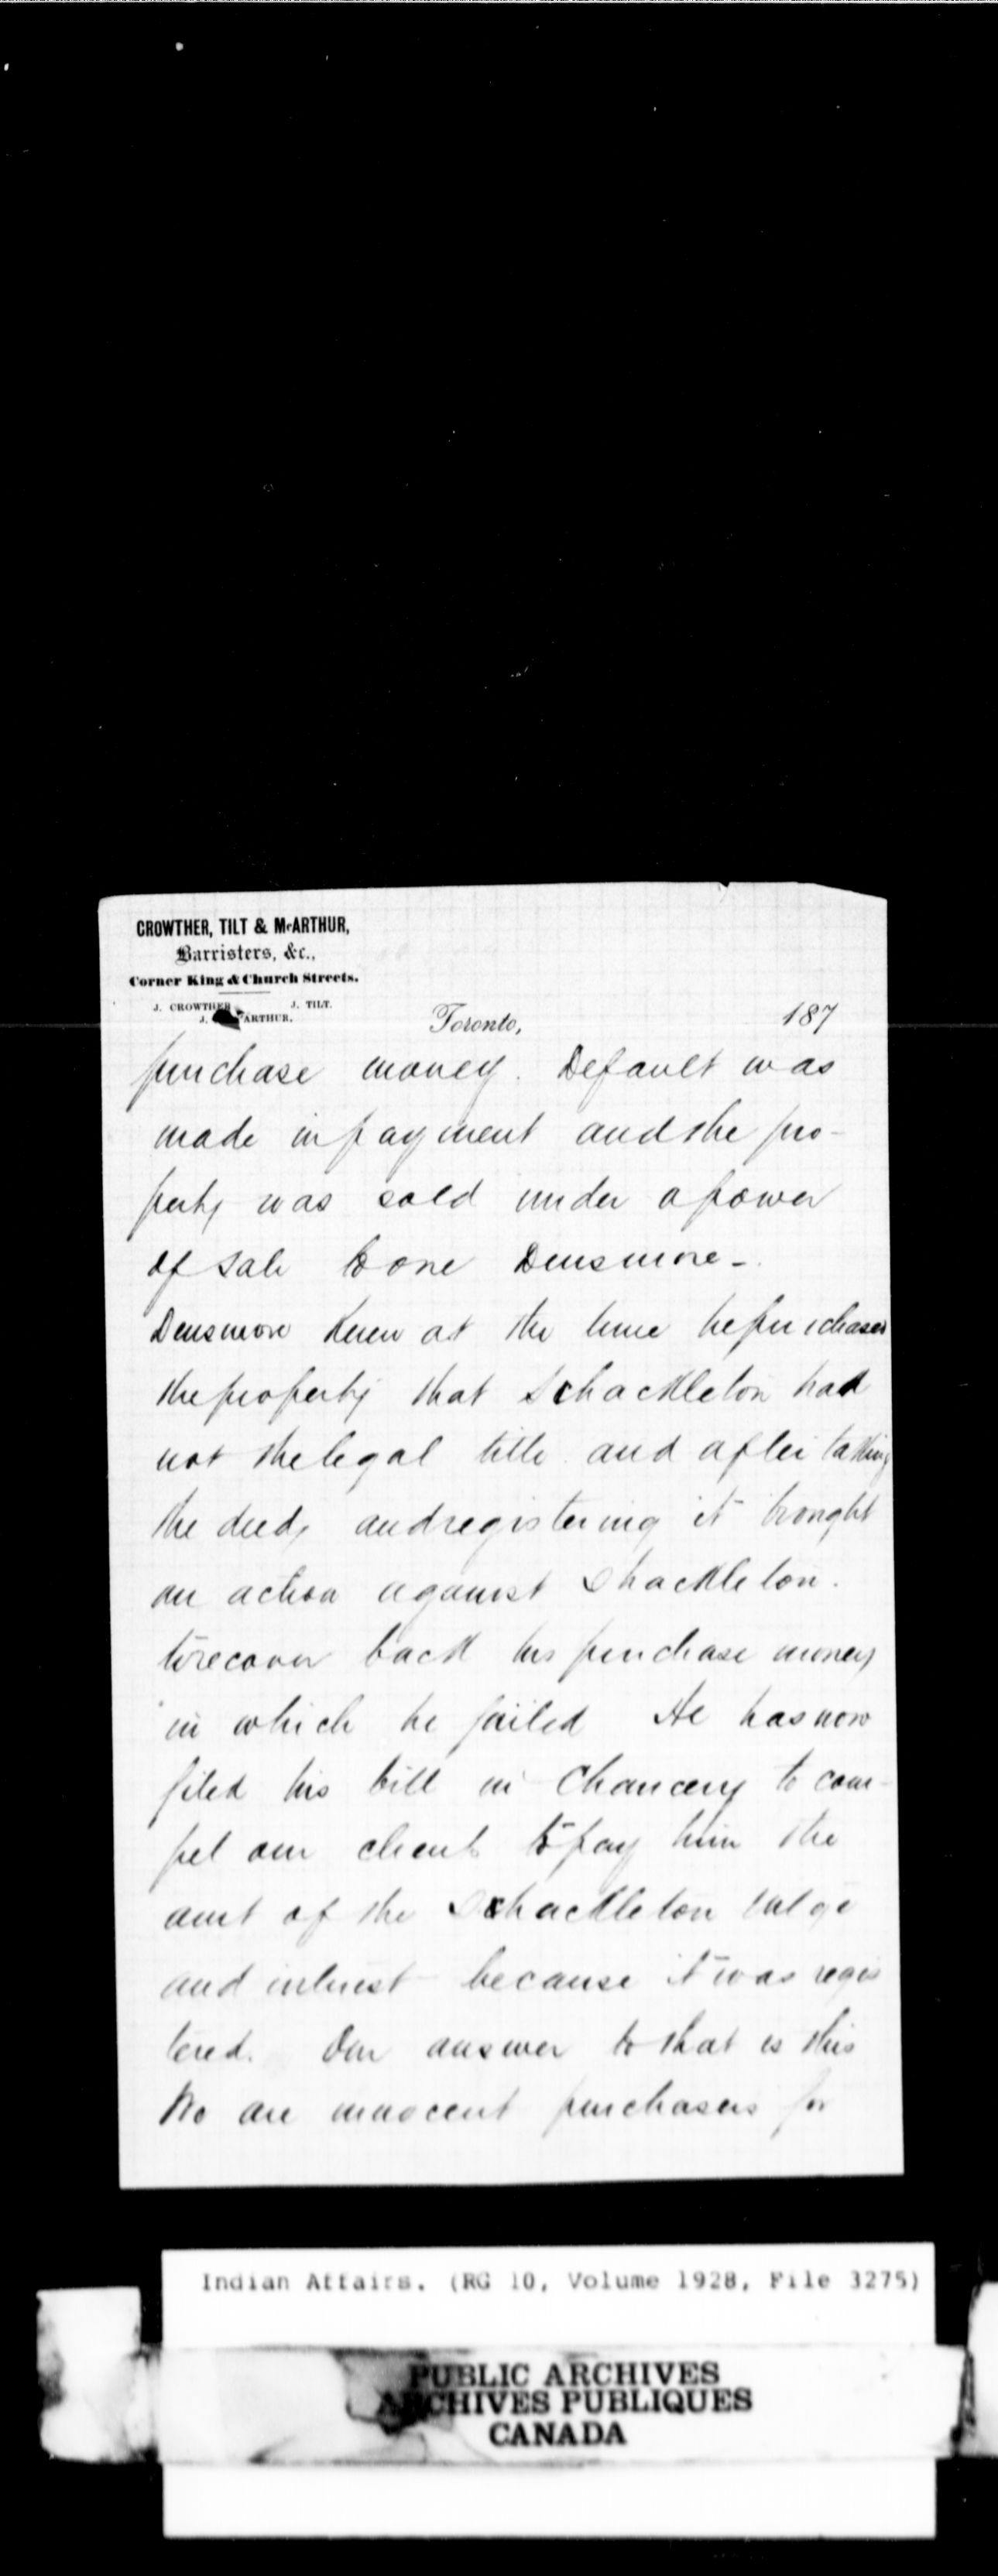 CROWTHER, TILT & McARTHUR,
Barristers, &c.,
Corner King & Church Streets.
J. CROWTHER J. TILT.
J. ARTHUR.
Toronto, 187
purchase money. Default was
made in payment and the pro-
perty was sold under a power
of sale to one Densmore -.
Densmore knew at the time he purchased
the property that Schackleton had
not the legal title and after taking
the deed, and registering it brought
an action against Shackleton.
to recover back his purchase money
in which he failed He has now
filed his bill in Chancery to com-
pel our client to pay him the
amt of the Schackleton mtge
and interest because it was regis
tered. Our answer to that is this
We are innocent purchasers for
Indian Affairs. (RG 10, Volume 1928, File 3275)
PUBLIC ARCHIVES
ARCHIVES PUBLIQUES
CANADA